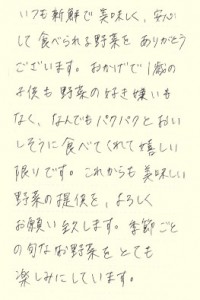 いつも新鮮で美味しく、安心
して食べられる野菜をありがとう
ございます。おかげで1歳の
子供も野菜の好き嫌いも
なく、なんでもパクパクとおい
しそうに食べてくれて嬉しい
限りです。これからも美味しい
野菜の提供を、よろしく
お願い致します。季節ごと
の旬なお野菜をとても
楽しみにしています。